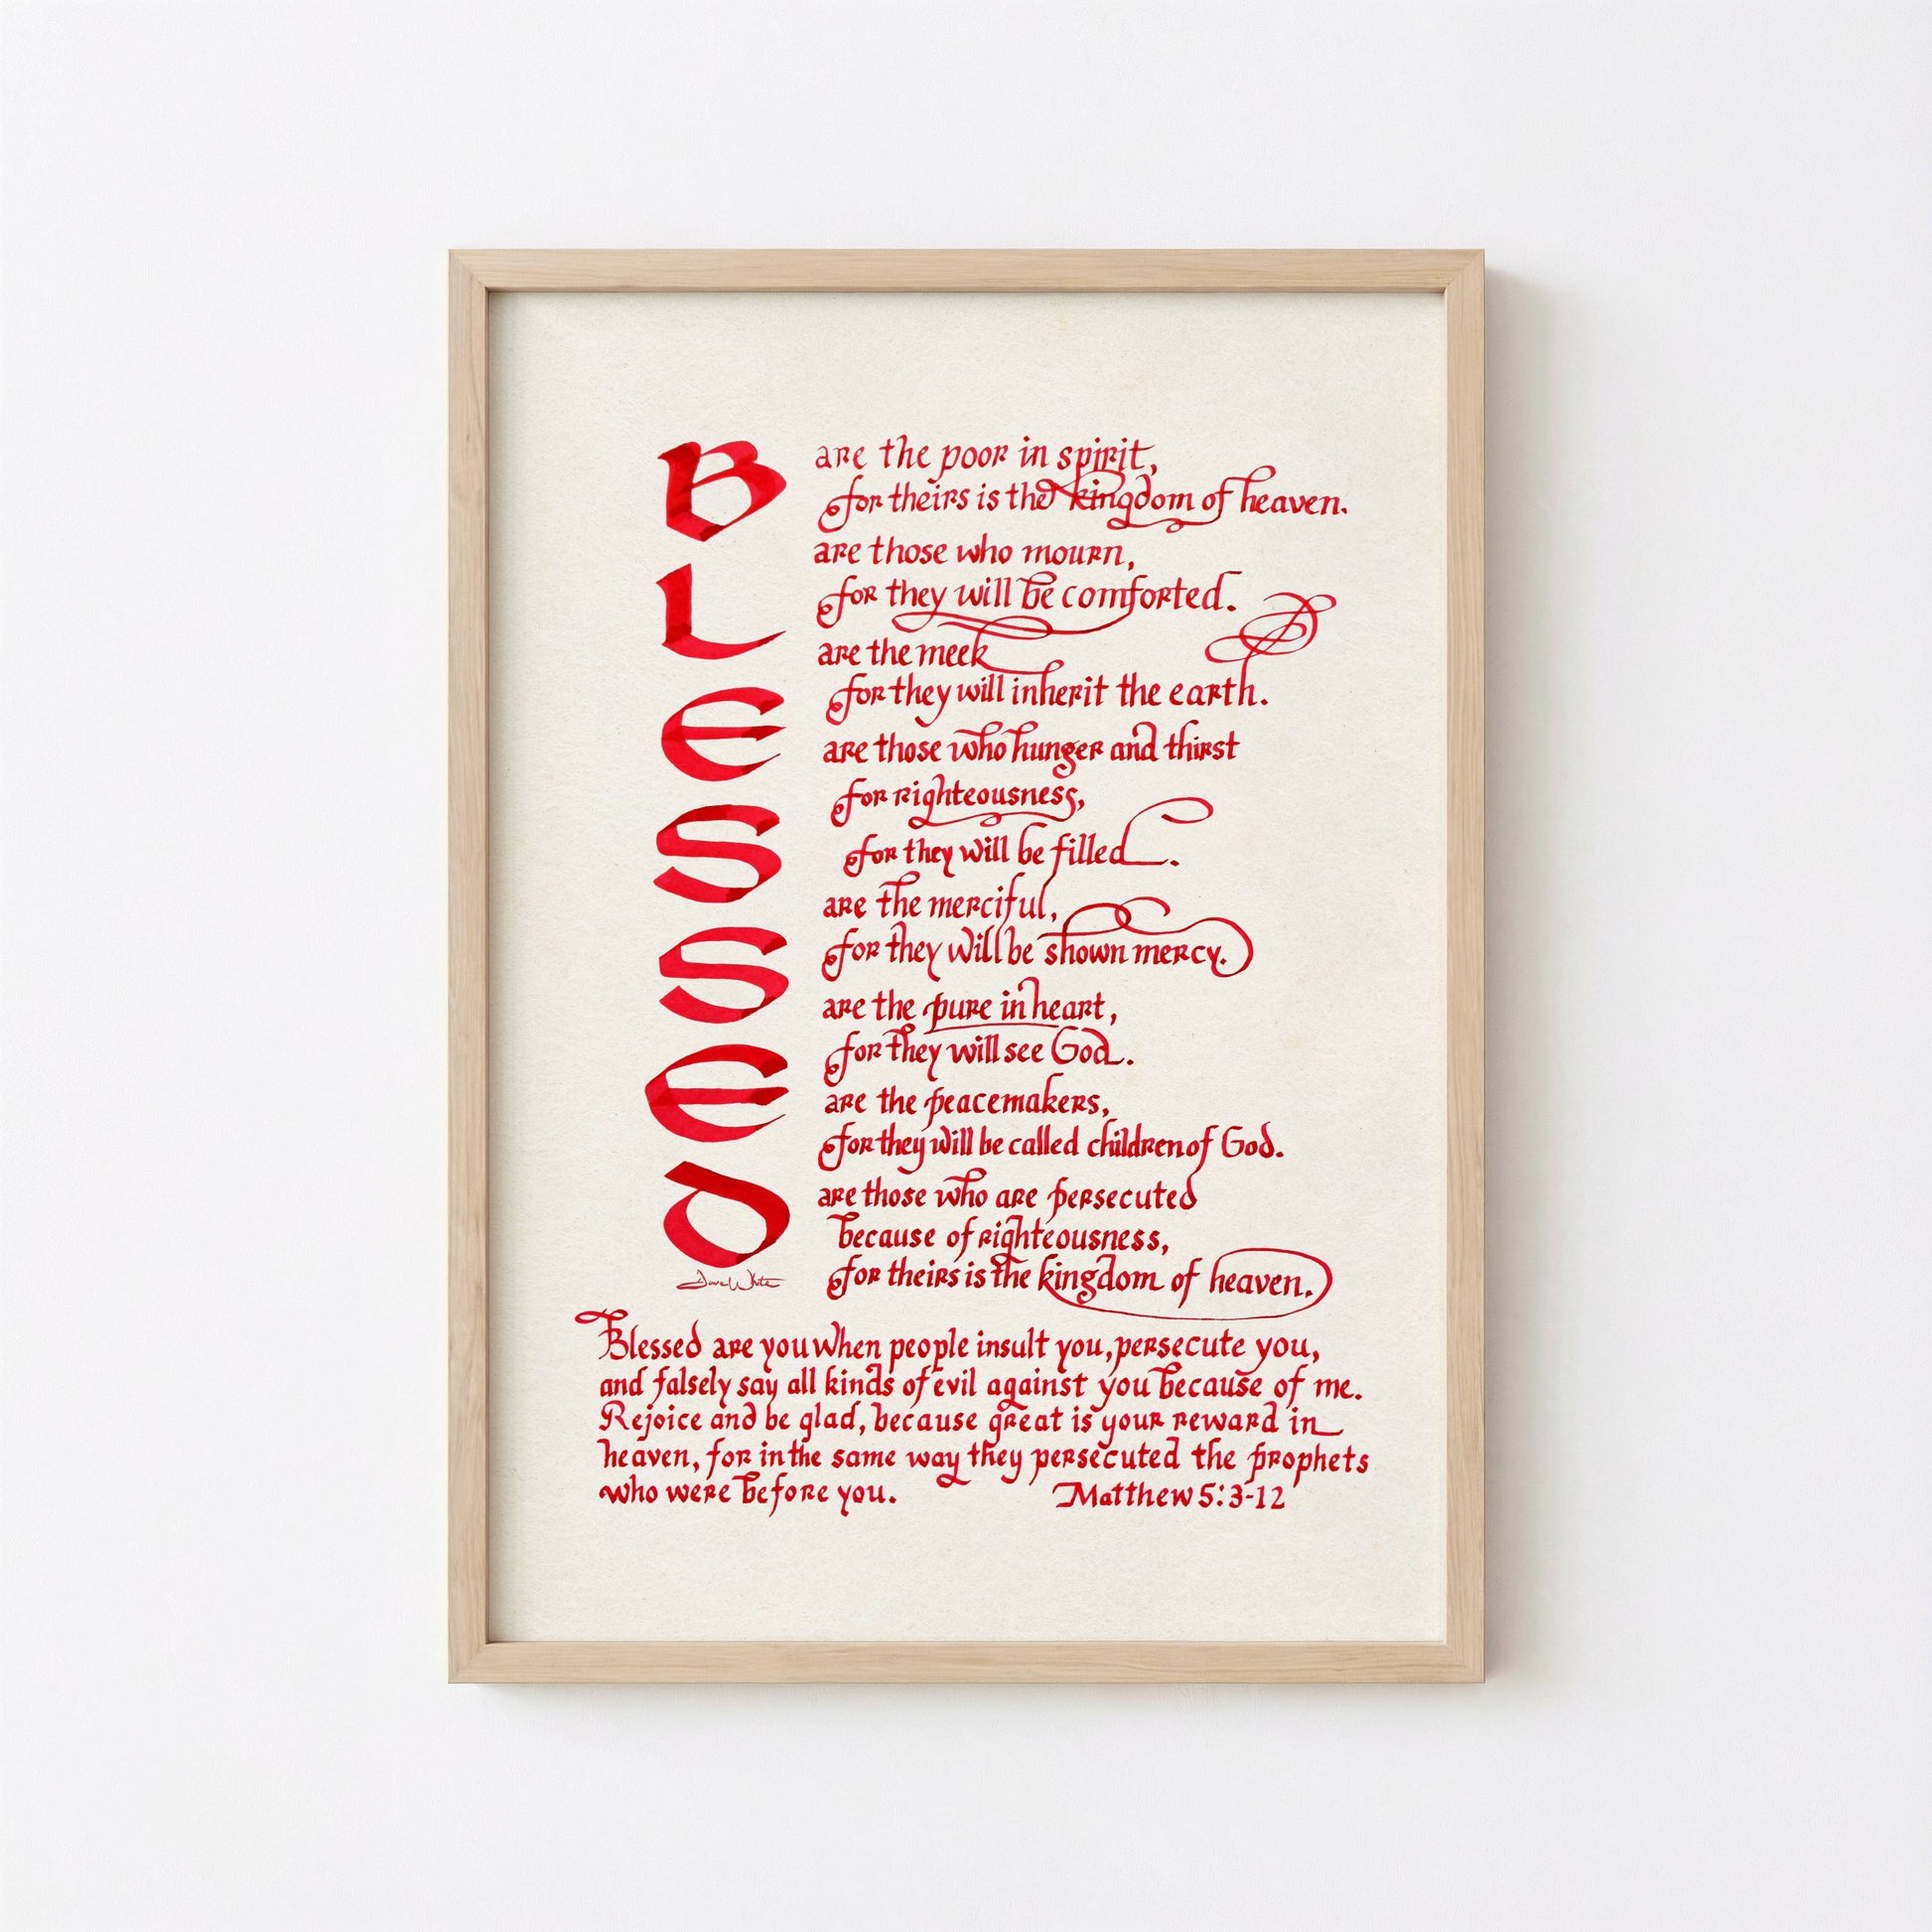 BLESSED
are the poor in spirit,
for theirs is the kingdom of heaven.
are those who mourn,
for they will be comforted.
are the meek
for they will inherit the earth.
are those who hunger and thirst
for righteousness,
for they will be filled.
are the merciful,
for they will be shown mercy.
are the pure in heart,
for they will see God.
are the peacemakers,
for they will be called children of God.
are those who are persecuted
because of righteousness,
for theirs is the kingdom of heaven.
Dave White
Blessed are you when people insult you, persecute you,
and falsely say all kinds of evil against you because of me.
Rejoice and be glad, because great is your reward in
heaven, for in the same way they persecuted the prophets
who were before you. Matthew 5:3-12